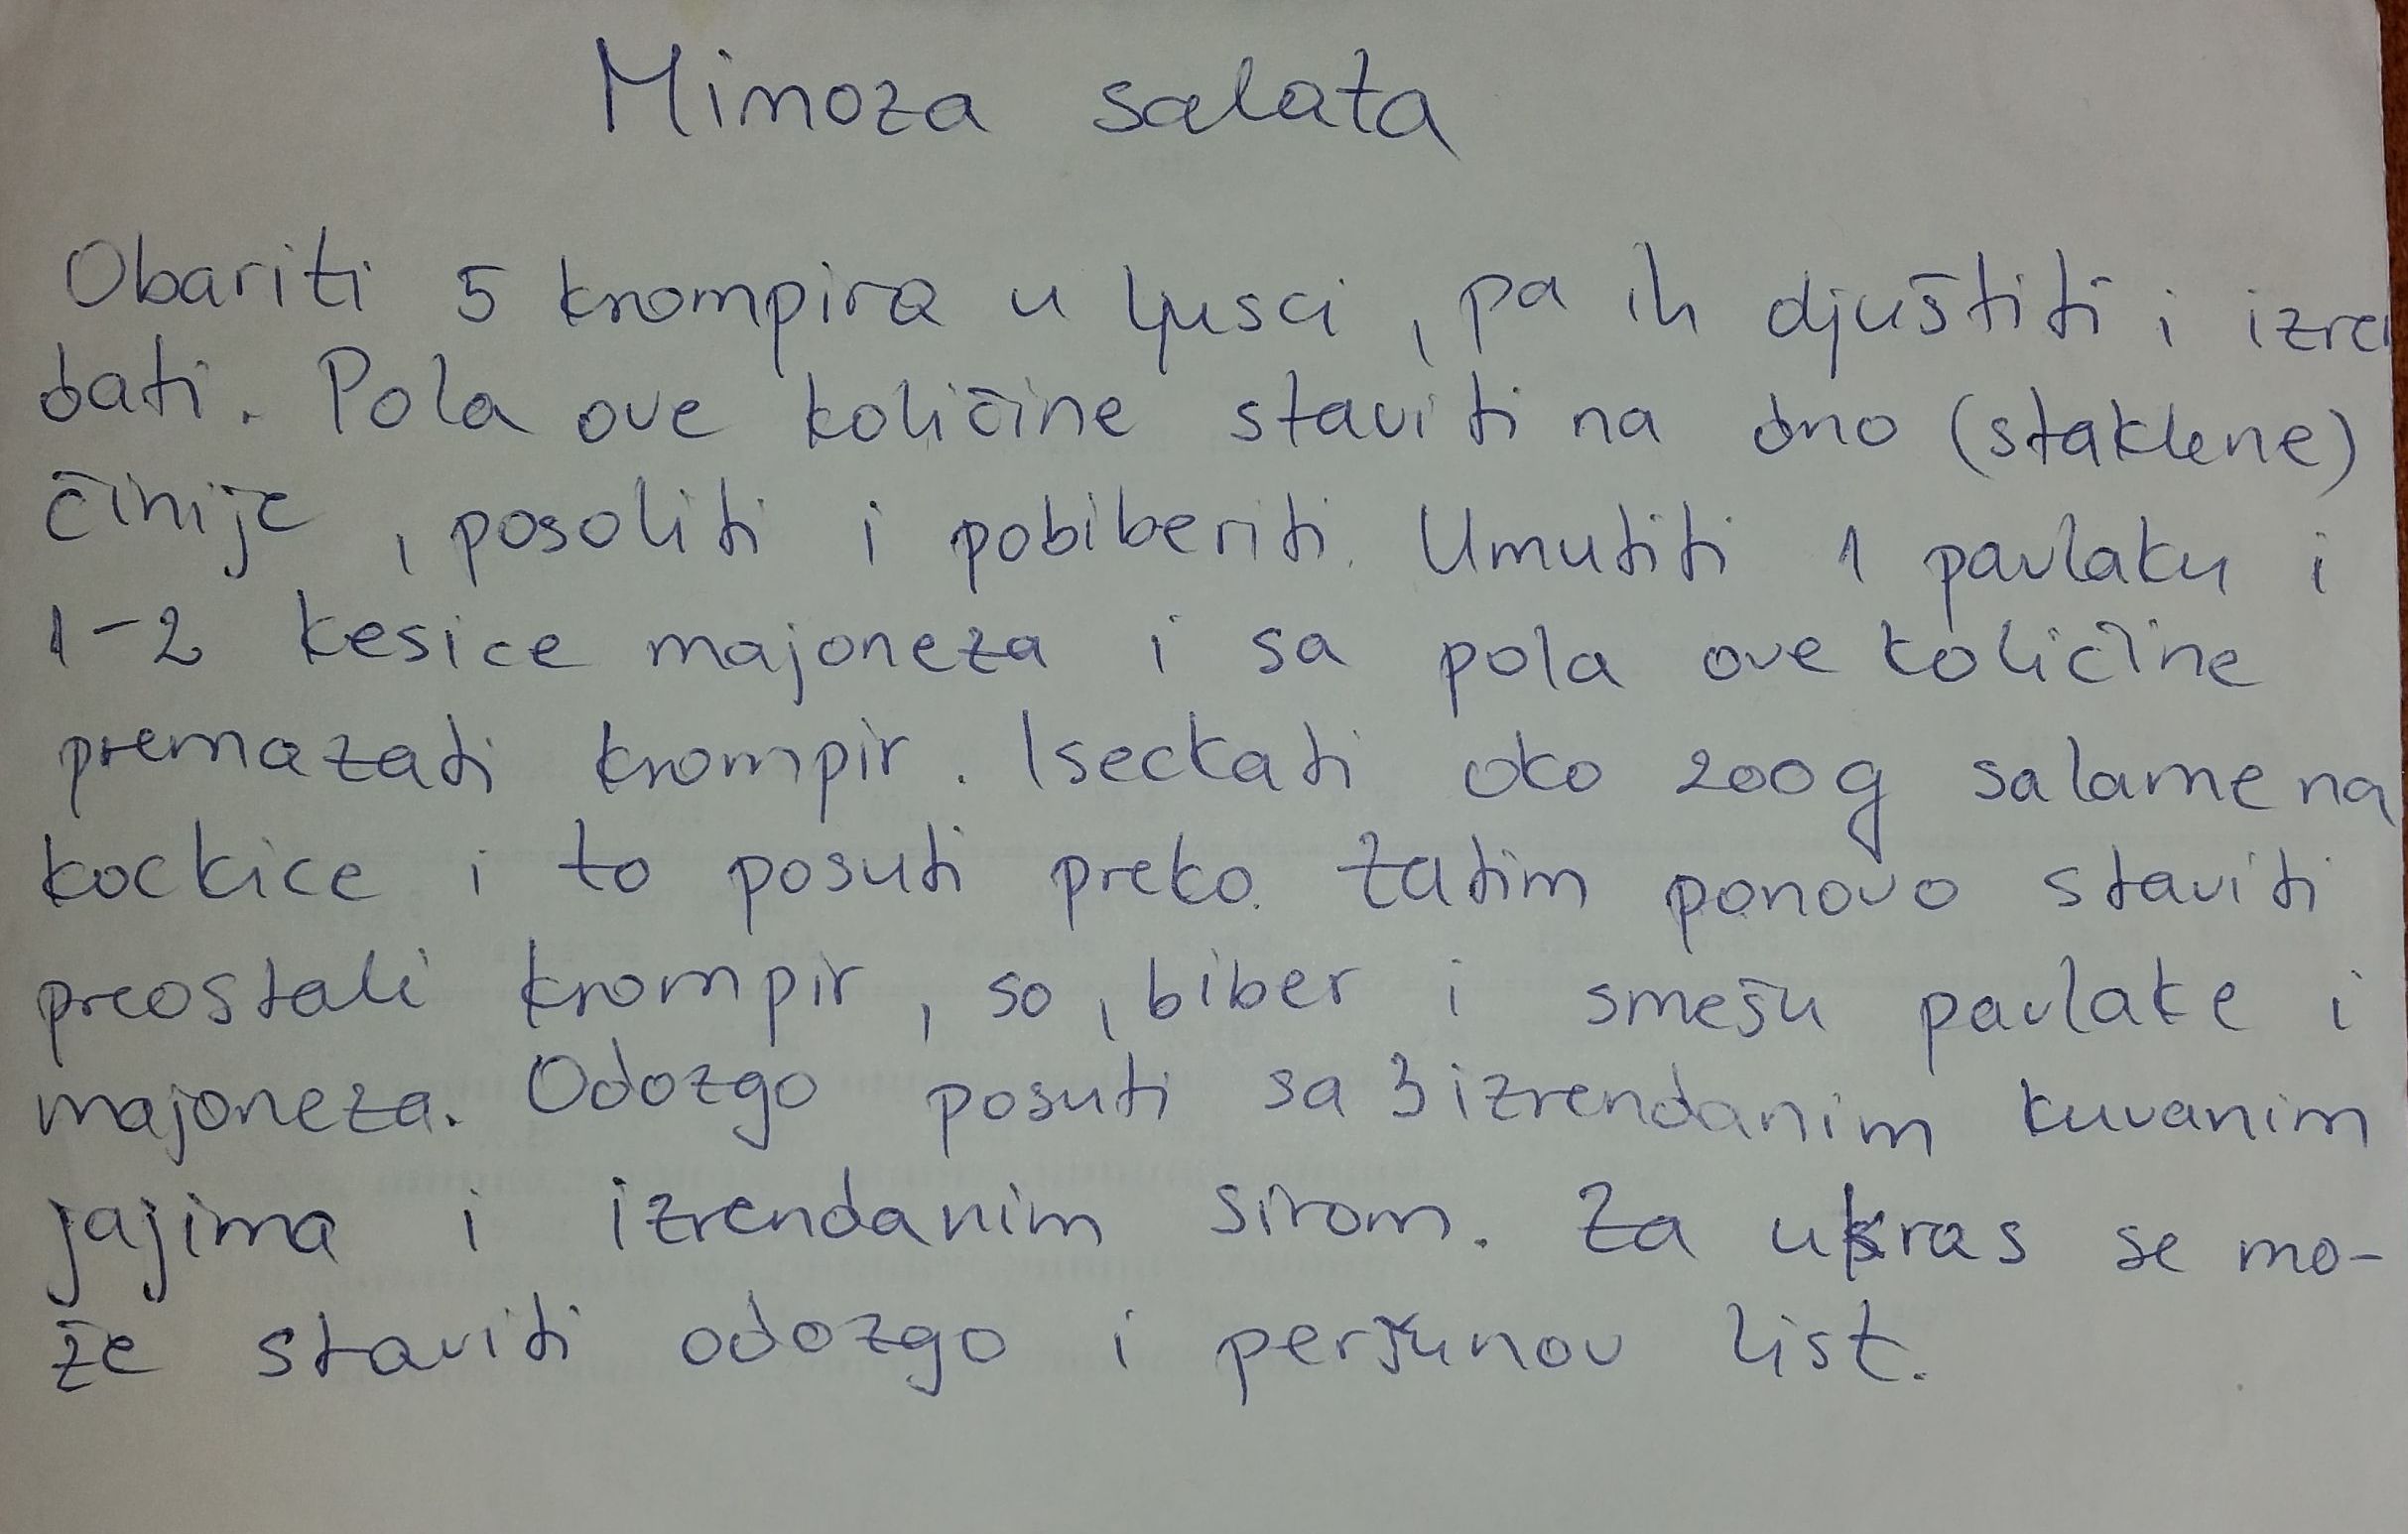 Mimoza salata
Obariti 5 krompira u ljusci, pa ih djuštiti i izren
dati. Pola ove količine staviti na dno (staklene)
činije, posoliti i pobiberiti. Umutiti 1 pavlaku i
1-2 kesice majoneza i sa pola ove količine
premazati krompir. Iseckati oko 200g salame na
kockice i to posuti preko. Zatim ponovo staviti
preostali krompir, so, biber i smešu pavlake i
majoneza. Odozgo posuti sa 3 izrendanim kuvanim
jajima i izrendanim sirom. Za ukras se mo-
že staviti odozgo i peršunov list.